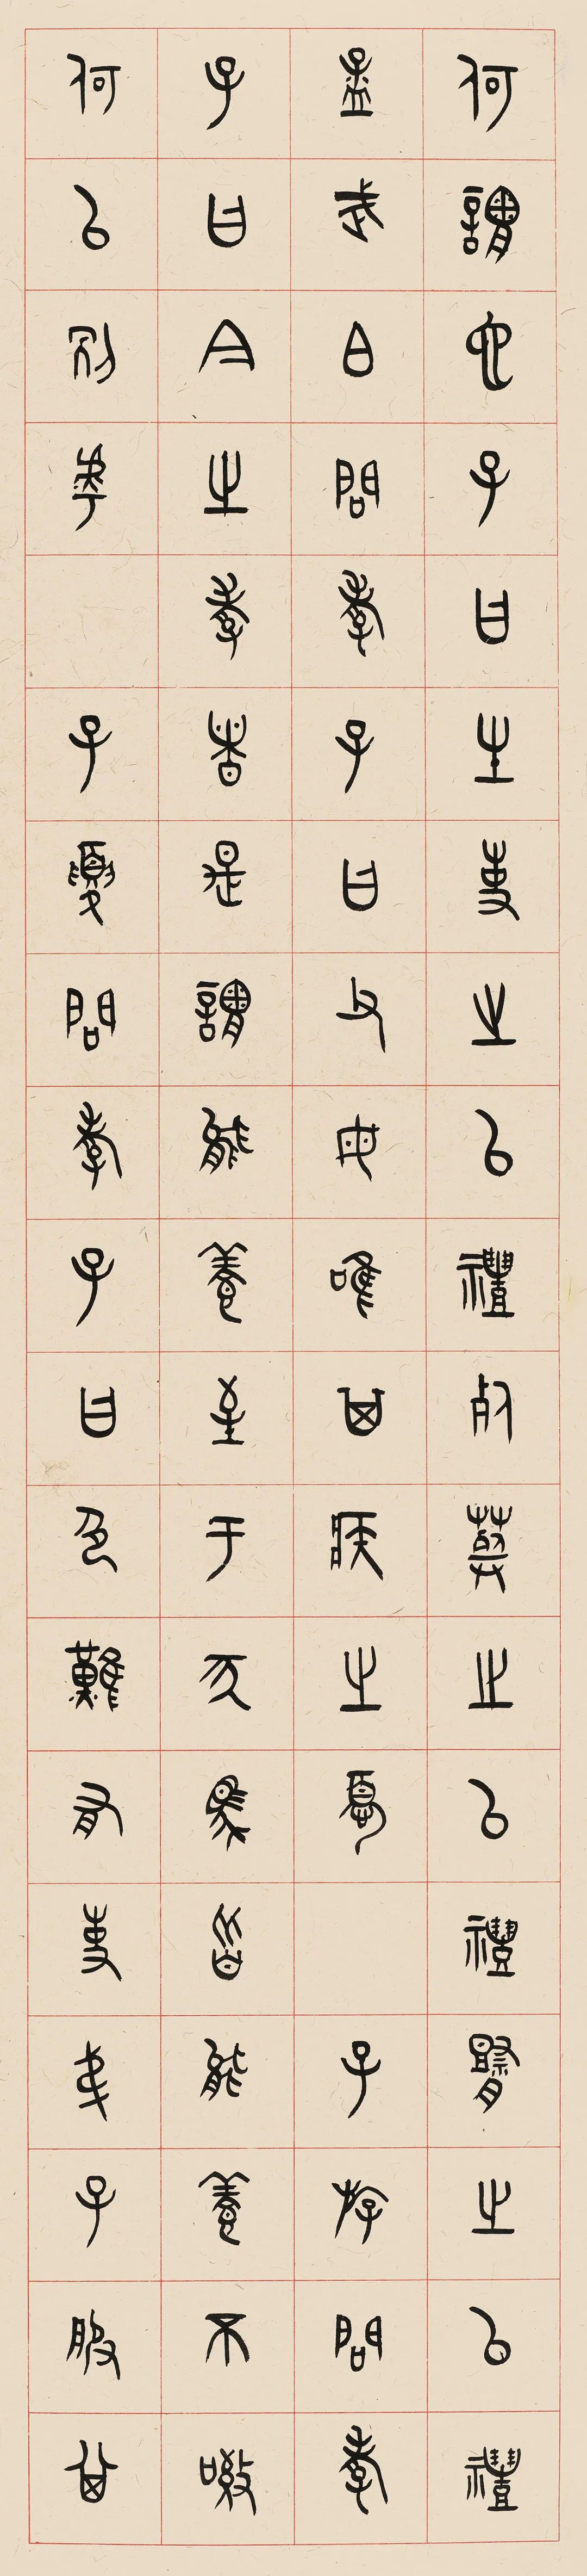 何謂也子曰生事之以禮死葬之以禮祭之以禮
孟武伯問孝子曰父母唯其疾之憂 子游問孝
子曰今之孝者是謂能養至于犬馬皆能養不敬
何以別乎 子夏問孝子曰色難有事弟子服其